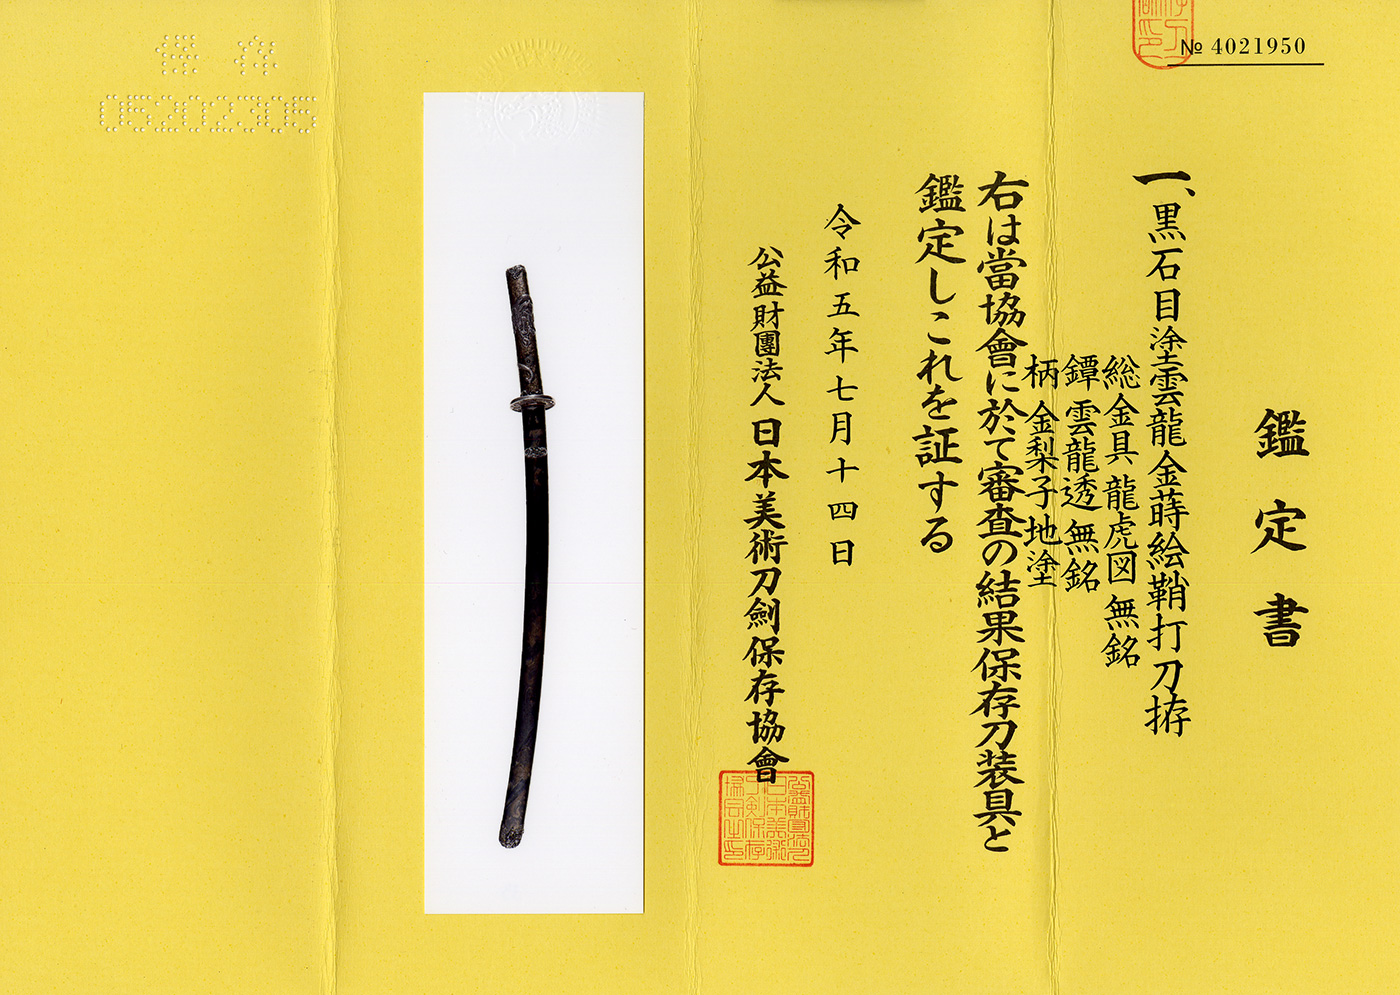 № 4021950
鑑定書
一、黒石目塗雲龍金蒔絵鞘打刀拵
総金具 龍虎図 無銘
鐔 雲龍透 無銘
柄 金梨子地塗
右は當協會に於て審査の結果保存刀装具と
鑑定しこれを証する
令和五年七月十四日
公益財團法人 日本美術刀劍保存協會
保存
05202305